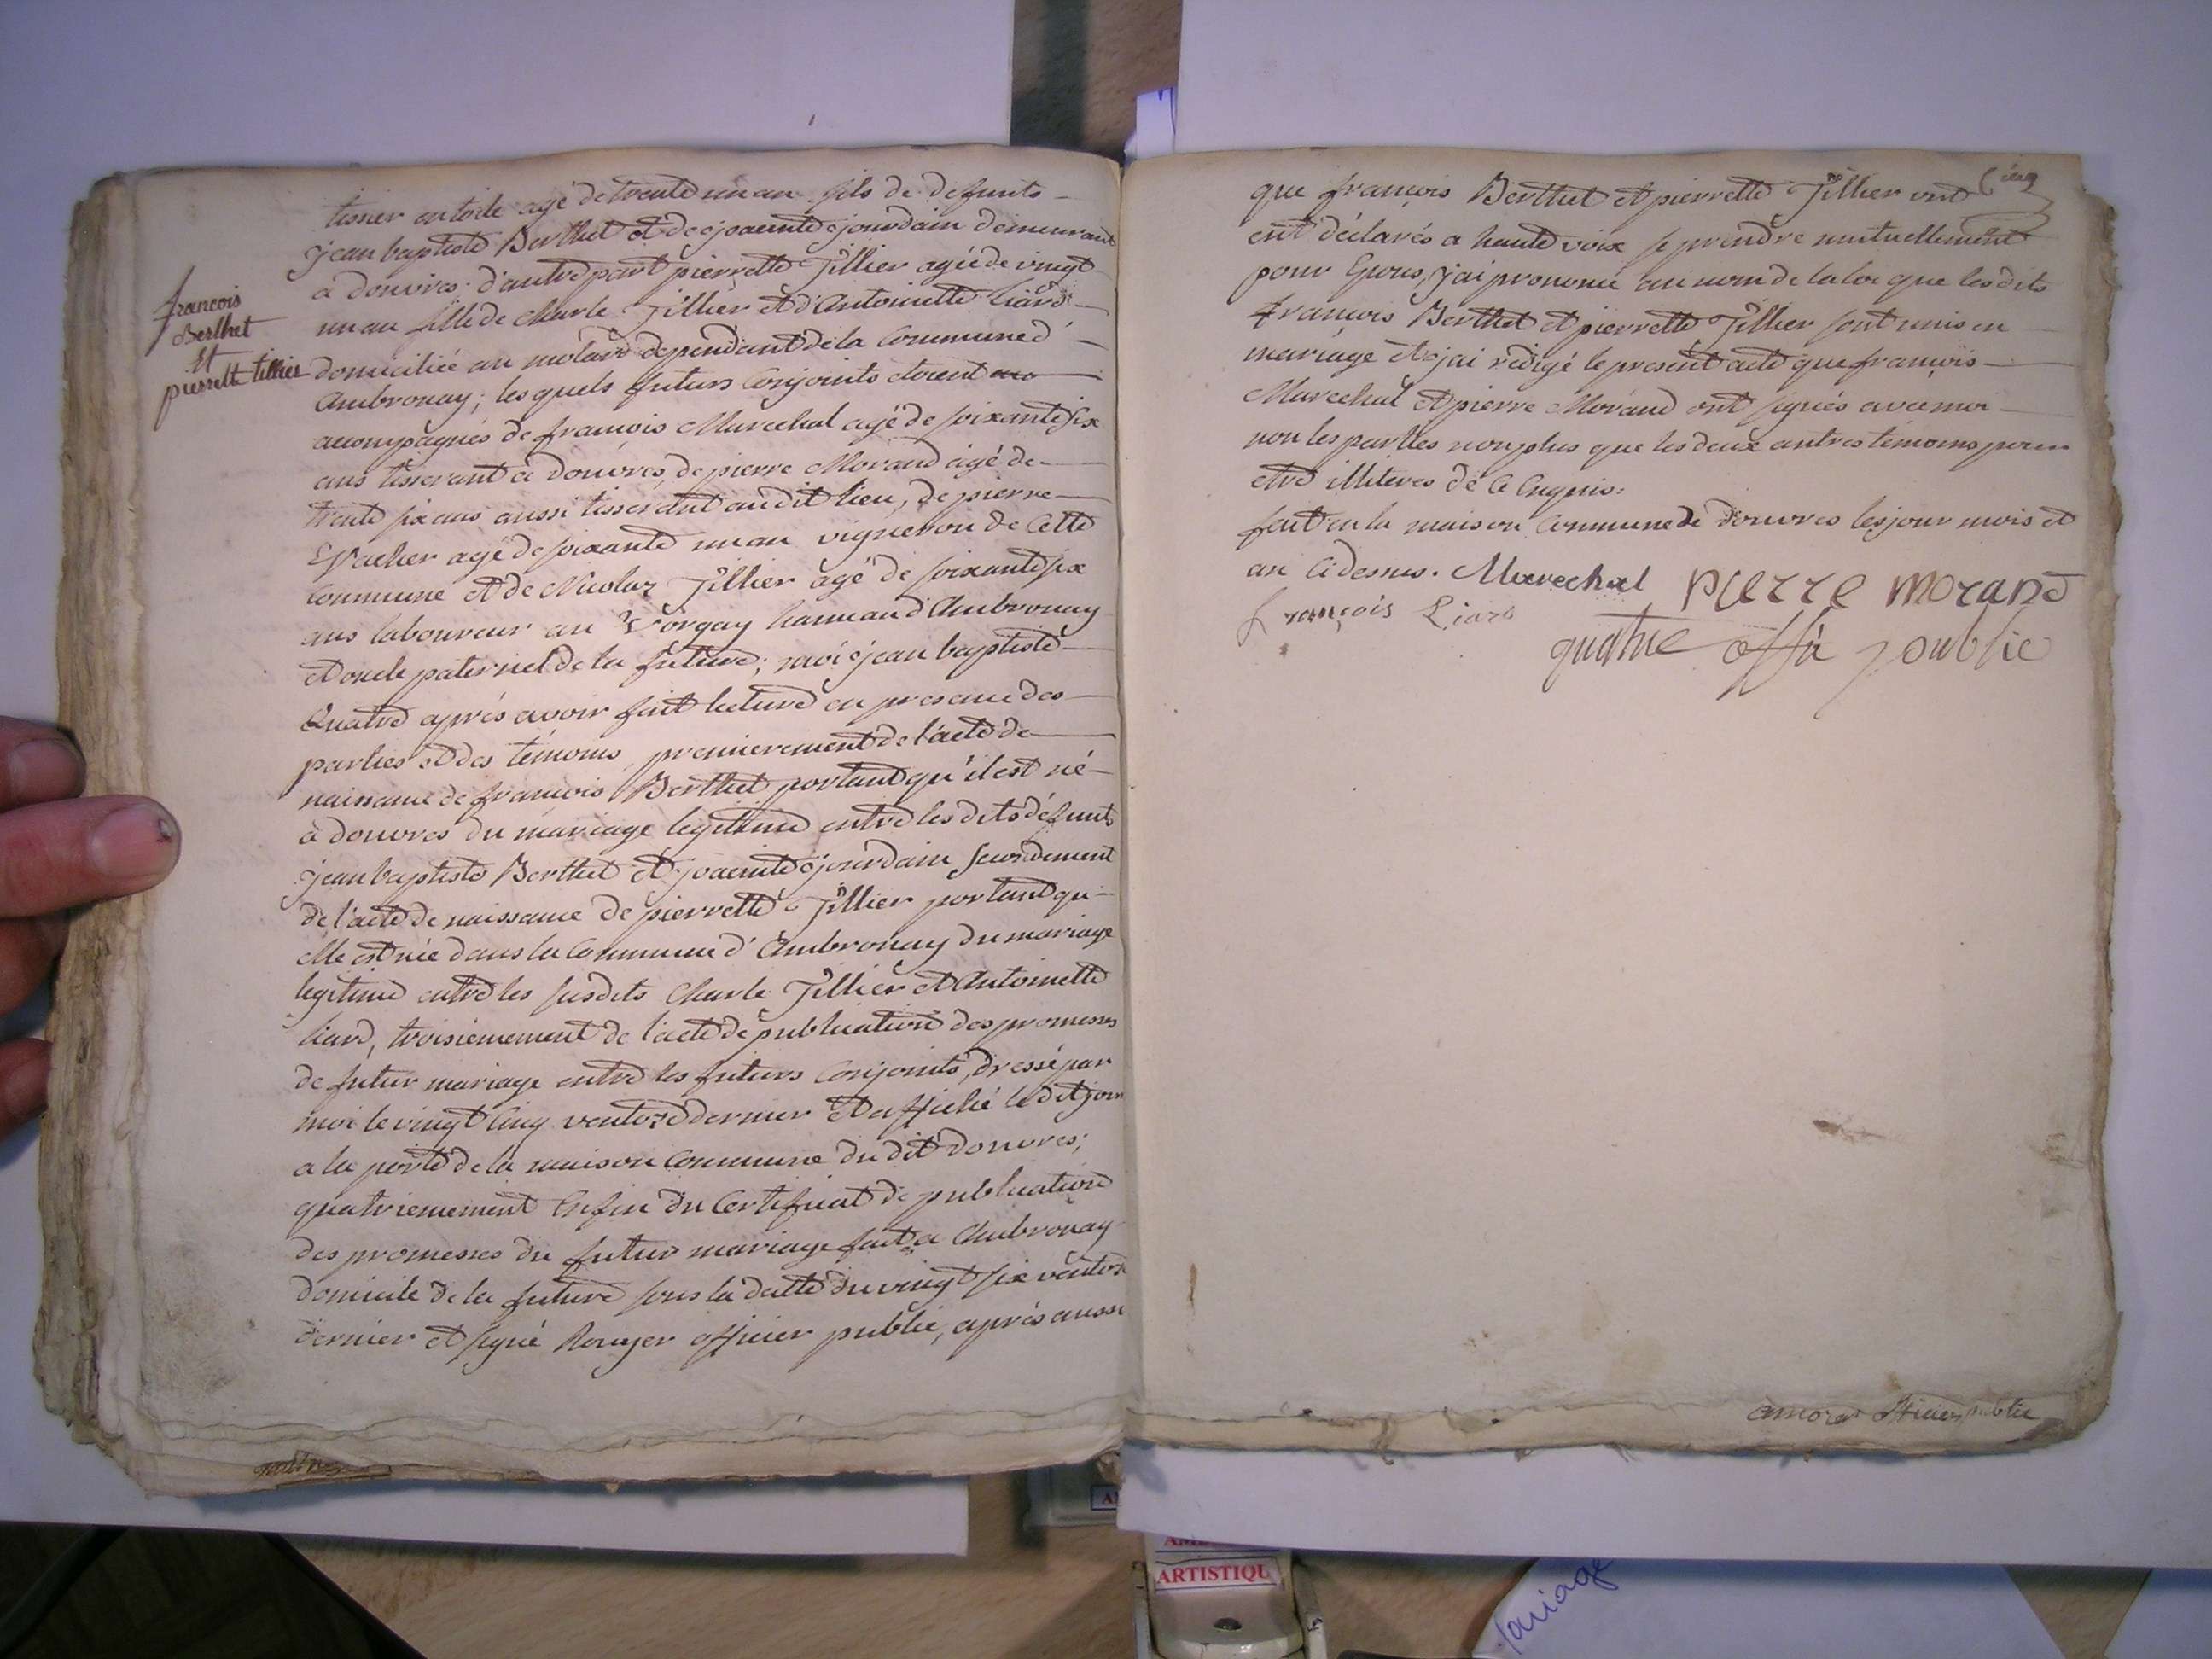 françois
Berthet
Et
pierrette tillier
tissier en toile agé de trente un an fils de defunts
jean baptiste Berthet et de joacinte jourdain demeurant
a douvres. d'autre part pierrette Tillier agée de vingt
un an fille de charle Tillier et d'antoinette liard
domiciliée au molard dependant de la Commune d'
Ambronay; lesquels futurs Conjoints etoient
accompagnés de françois Marechal agé de soixante six
ans tisserant a douvres, de pierre Morand agé de
trente six ans aussi tisserant au dit lieu, de pierre
Vacher agé de soixante un an vigneron de Cette
Commune et de Nicolas Tillier agé de soixante six
ans laboureur au Vorgay hameau d'Ambronay
et oncle paternel de la future; moi jean baptiste
Quatre après avoir fait lecture en presence des
parties et des témoins, premierement de l'acte de
naissance de françois Berthet portant qu'il est né
a douvres du mariage legitime entre les dits défunts
jean baptiste Berthet et joacinte jourdain secondement
de l'acte de naissance de pierrette Tillier portant qu'
elle est née dans la Commune d'Ambronay du mariage
legitime entre les susdits Charle Tillier et Antoinette
liard, troisiemement de l'acte de publication des promesses
de futur mariage entre les futurs Conjoints, dressé par
moi le vingt Cinq ventose dernier et affiché le dit jour
a la porte de la maison Commune du dit Douvres;
quatriemement Enfin du Certificat de publication
des promesses du futur mariage fait a Ambronay
domicile de la future sous la datte du vingt six ventose
dernier et signé Rouyer officier public, après aussi
que françois Berthet et pierrette Tillier ont
eut déclarés a haute voix se prendre mutuellement
pour Epoux, j'ai prononcé au nom de la loi que les dits
françois Berthet et pierrette Tillier sont unis en
mariage et j'ai rédigé le present acte que françois
Marechal et pierre Morand ont signés avec moi
non les parties non plus que les deux autres témoins pour
etre illiteres de Ce Enquis.
fait en la maison Commune de douvres les jour mois et
an Ci dessus. Marechal pierre morand
françois Liard
quatre offi public
amorar officier public